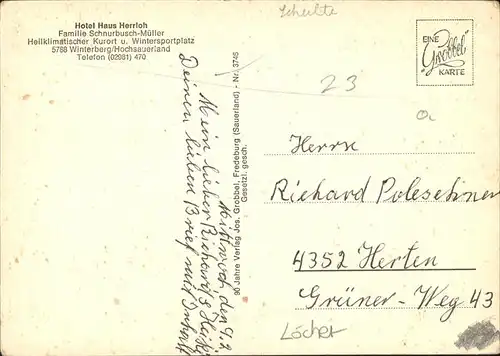 Schulte
Hotel Haus Herrloh
Familie Schnurbusch-Müller
Heilklimatischer Kurort u. Wintersportplatz
5788 Winterberg/Hochsauerland
Telefon (02981) 470
EINE
„Grobbel"
KARTE
23
90 Jahre Verlag Jos. Grobbel, Fredeburg (Sauerland) - Nr. 3745
Gesetzl. gesch.
Mittwoch den 9.2
Mein lieber Richard's
Deinen lieben Brief mit Inhalt
Herrn
Richard Poleschner
4352 Herten
Grüner-Weg 43
Löcher